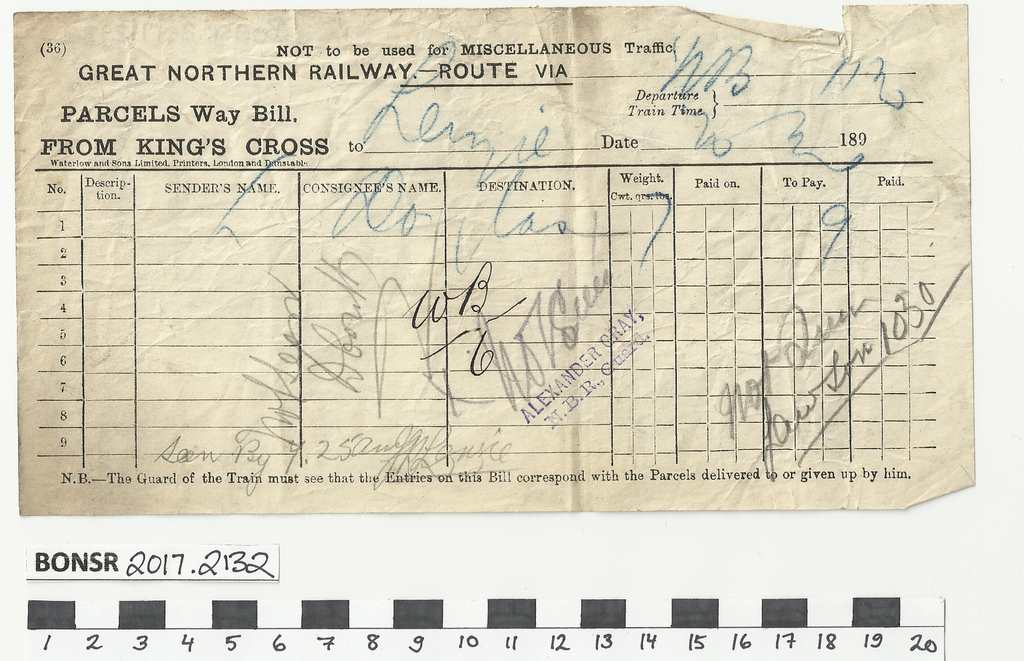 (36)
NOT to be used for MISCELLANEOUS Traffic.
GREAT NORTHERN RAILWAY.—ROUTE VIA NB
Departure Train Time
PARCELS Way Bill.
FROM KING'S CROSS to Lenzie Date 20 2 189
Waterlow and Sons Limited, Printers, London and Dunstable.
No. Description. SENDER'S NAME. CONSIGNEE'S NAME. DESTINATION. Weight. Cwt. qrs. lbs. Paid on. To Pay. Paid.
1 Douglas 7 9
2
3
4 WB
5
6
7
8
9
Not Seen
ALEXANDER GRAY,
N.B.R., Guard.
Not Seen
Seen By
N.B.—The Guard of the Train must see that the Entries on this Bill correspond with the Parcels delivered to or given up by him.
BONSR 2017.2132
1 2 3 4 5 6 7 8 9 10 11 12 13 14 15 16 17 18 19 20